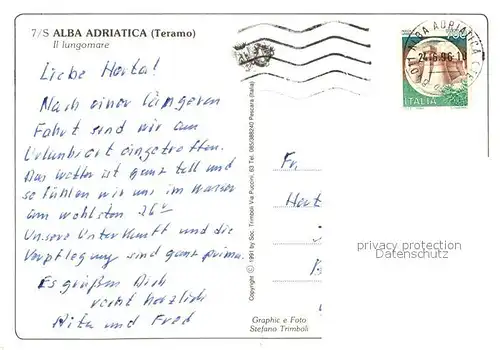 7/S ALBA ADRIATICA (Teramo)
Il lungomare
Liebe Herta!
Nach einer längeren
Fahrt sind wir am
Urlaubsort eingetroffen.
Das Wetter ist ganz toll und
so fühlen wir uns im Wasser
am wohlsten 26°
Unsere Unterkunft und die
Verpflegung sind ganz prima.
Es grüßen Dich
recht herzlich
Rita und Fred
Copyright © 1991 by Soc. Trimboli Via Puccini, 63 Tel. 085/388240 Pescara (Italia)
Graphic e Foto
Stefano Trimboli
ALBA ADRIATICA
24.6.96
ITALIA
Fr.
Hert
privacy protection
Datenschutz